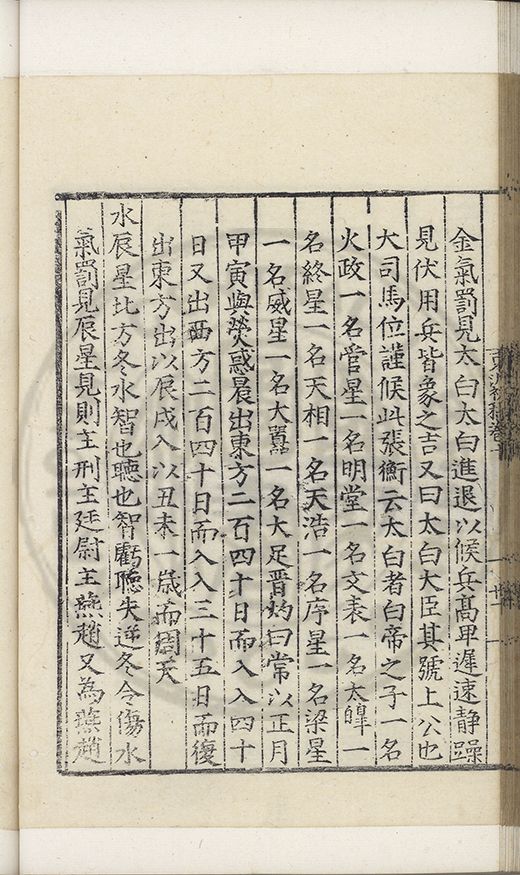 金氣罰見太白太白進退以候兵高卑遲速静躁
見伏用兵皆象之吉又曰太白大臣其號上公也
大司馬位謹候此張衡云太白者白帝之子一名
火政一名官星一名明堂一名文表一名太皥一
名終星一名天相一名天浩一名序星一名梁星
一名威星一名大囂一名大足晋灼曰常以正月
甲寅與熒惑晨出東方二百四十日而入入四十
日又出西方二百四十日而入入三十五日而復
出東方出以辰戌入以丑未一歲而周天
水辰星北方冬水智也聽也智虧聽失逆冬令傷水
氣罰見辰星見則主刑主廷尉主燕趙又為燕趙